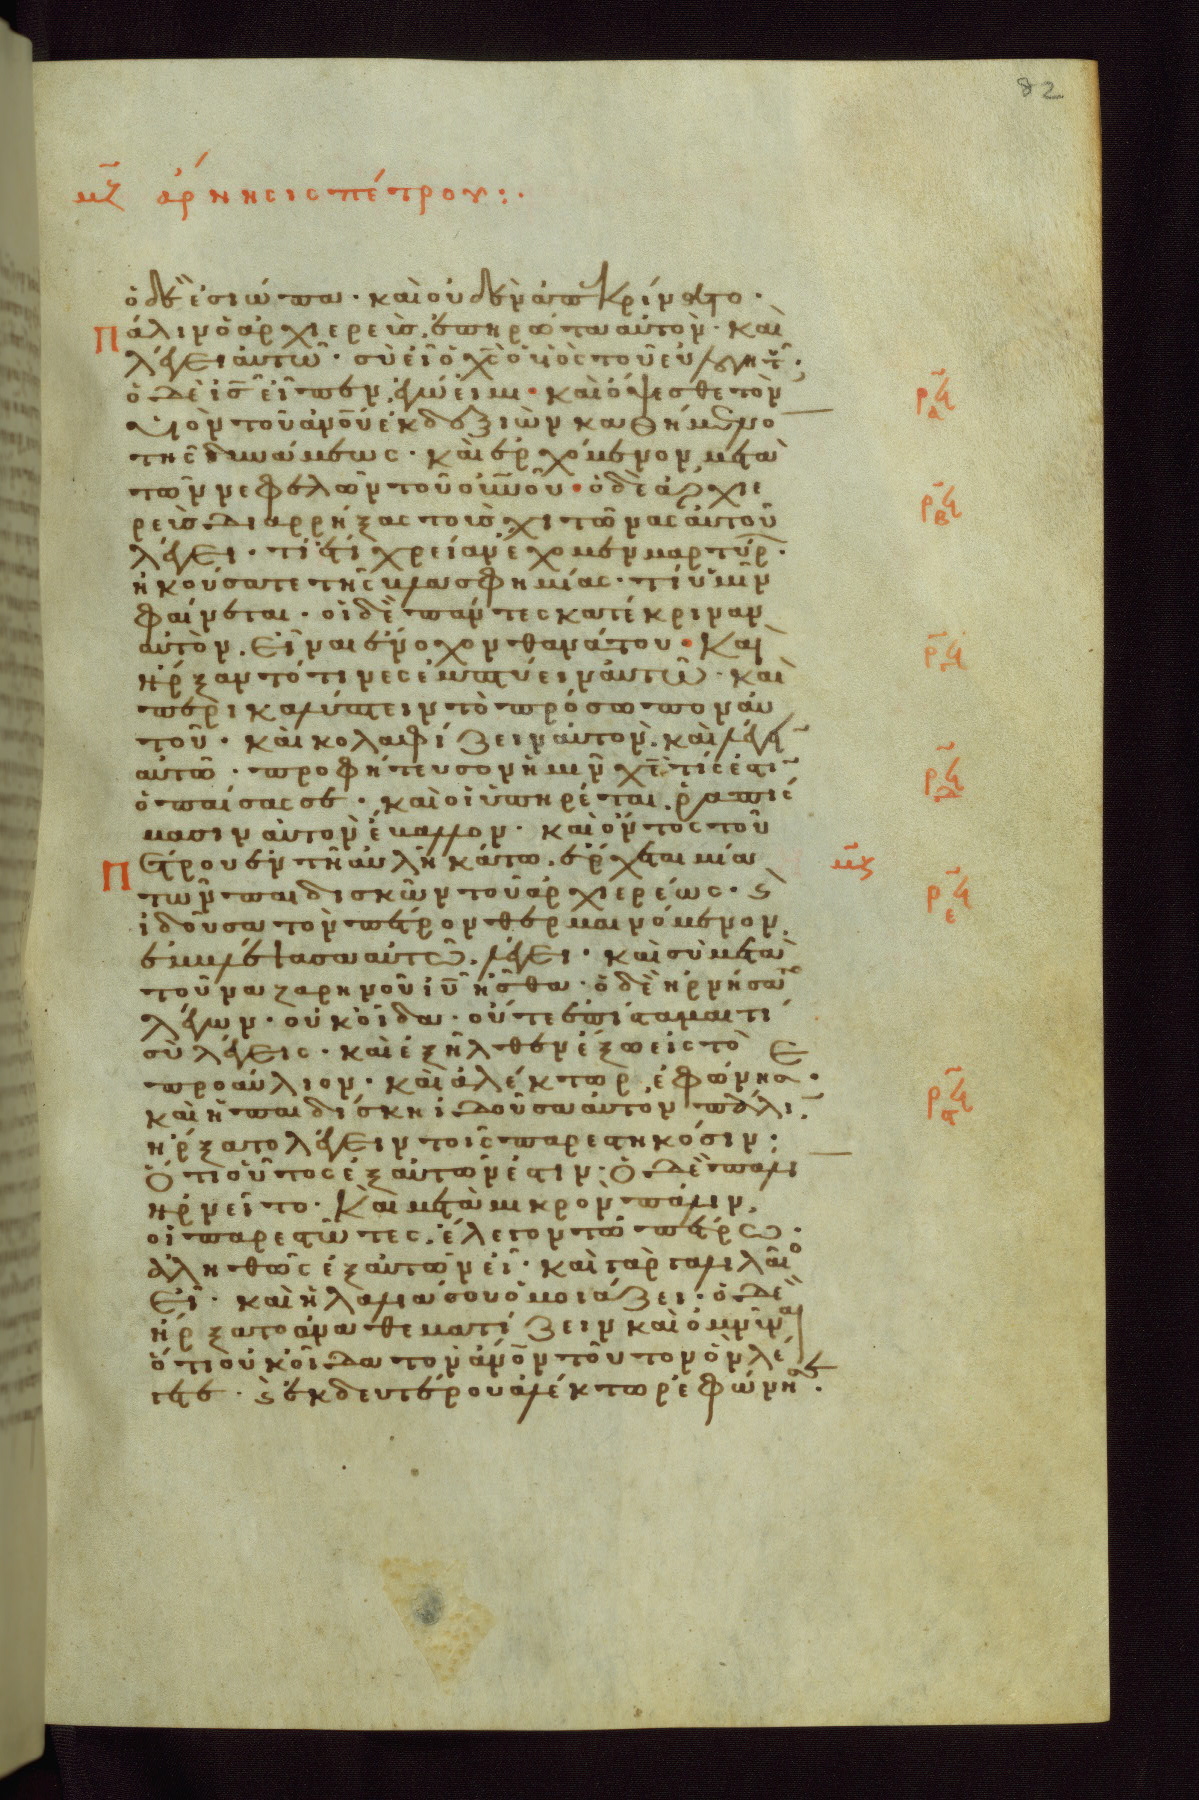 82
μζ ἄρνησις πέτρου:·
ὁ δὲ ἐσιώπα· καὶ οὐδὲν ἀπεκρίνατο·
Πάλιν ὁ ἀρχιερεὺς ἐπηρώτα αὐτὸν· καὶ
λέγει αὐτῶ· σὺ εἶ ὁ χς ὁ υἱὸς τοῦ εὐλογητ·
ὁ δὲ ις εἶπεν, ἐγώ εἰμι· καὶ ὄψεσθε τὸν
υἱὸν τοῦ ανου ἐκ δεξιῶν καθήμενο
τῆς δυνάμεως· καὶ ἐρχόμενον μετὰ
τῶν νεφελῶν τοῦ οὐνοῦ· ὁ δὲ ἀρχιε
ρεὺς διαρρήξας τοὺς χιτῶνας αὐτοῦ
λέγει· τί ἔτι χρείαν ἔχομεν μαρτύρ·
ἠκούσατε τῆς βλασφημίας· τί ὑμῖν
φαίνεται· οἱ δὲ πάντες κατέκριναν
αὐτὸν, εἶναι ἔνοχον θανάτου· Καὶ
ἤρξαντό τινες ἐμπτύειν αὐτῶ· καὶ
περικαλύπτειν τὸ πρόσωπον αὐ
τοῦ· καὶ κολαφίζειν αὐτὸν, καὶ λέγει
αὐτῶ· προφήτευσον ἡμῖν χε τίς ἐστι
ὁ παίσας σε· καὶ οἱ ὑπηρέται, ῥαπίσ
μασιν αὐτὸν ἔβαλλον· καὶ ὄντος τοῦ
Πέτρου ἐν τῆ αὐλῆ κάτω, ἔρχεται μία
τῶν παιδισκῶν τοῦ ἀρχιερέως· ϗ
ἰδοῦσα τὸν πέτρον θερμαινόμενον,
ἐμβλέψασα αὐτῶ, λέγει· καὶ σὺ μετὰ
τοῦ ναζαρηνοῦ ιυ ἦσθα· ὁ δὲ ἠρνήσατο
λέγων· οὐκ οἶδα· οὔτε ἐπίσταμαι τί
σὺ λέγεις· καὶ ἐξῆλθεν ἔξω εἰς τὸ
προαύλιον· καὶ ἀλέκτωρ ἐφώνησε·
καὶ ἡ παιδίσκη ἰδοῦσα αὐτὸν πάλι,
ἤρξατο λέγειν τοῖς παρεστηκόσιν·
ὅτι οὗτος ἐξ αὐτῶν ἐστιν· ὁ δὲ πάλι
ἠρνεῖτο· Καὶ μετὰ μικρὸν πάλιν,
οἱ παρεστῶτες, ἔλεγον τῶ πέτρω·
ἀληθῶς ἐξ αὐτῶν εἶ· καὶ γὰρ γαλιλαῖο
εἶ· καὶ ἡ λαλιά σου ὁμοιάζει· ὁ δὲ
ἤρξατο ἀναθεματίζειν καὶ ὀμνύναι
ὅτι οὐκ οἶδα τὸν ανον τοῦτον ὃν λέ
γετε· ϗ ἐκ δευτέρου ἀλέκτωρ ἐφώνησε·